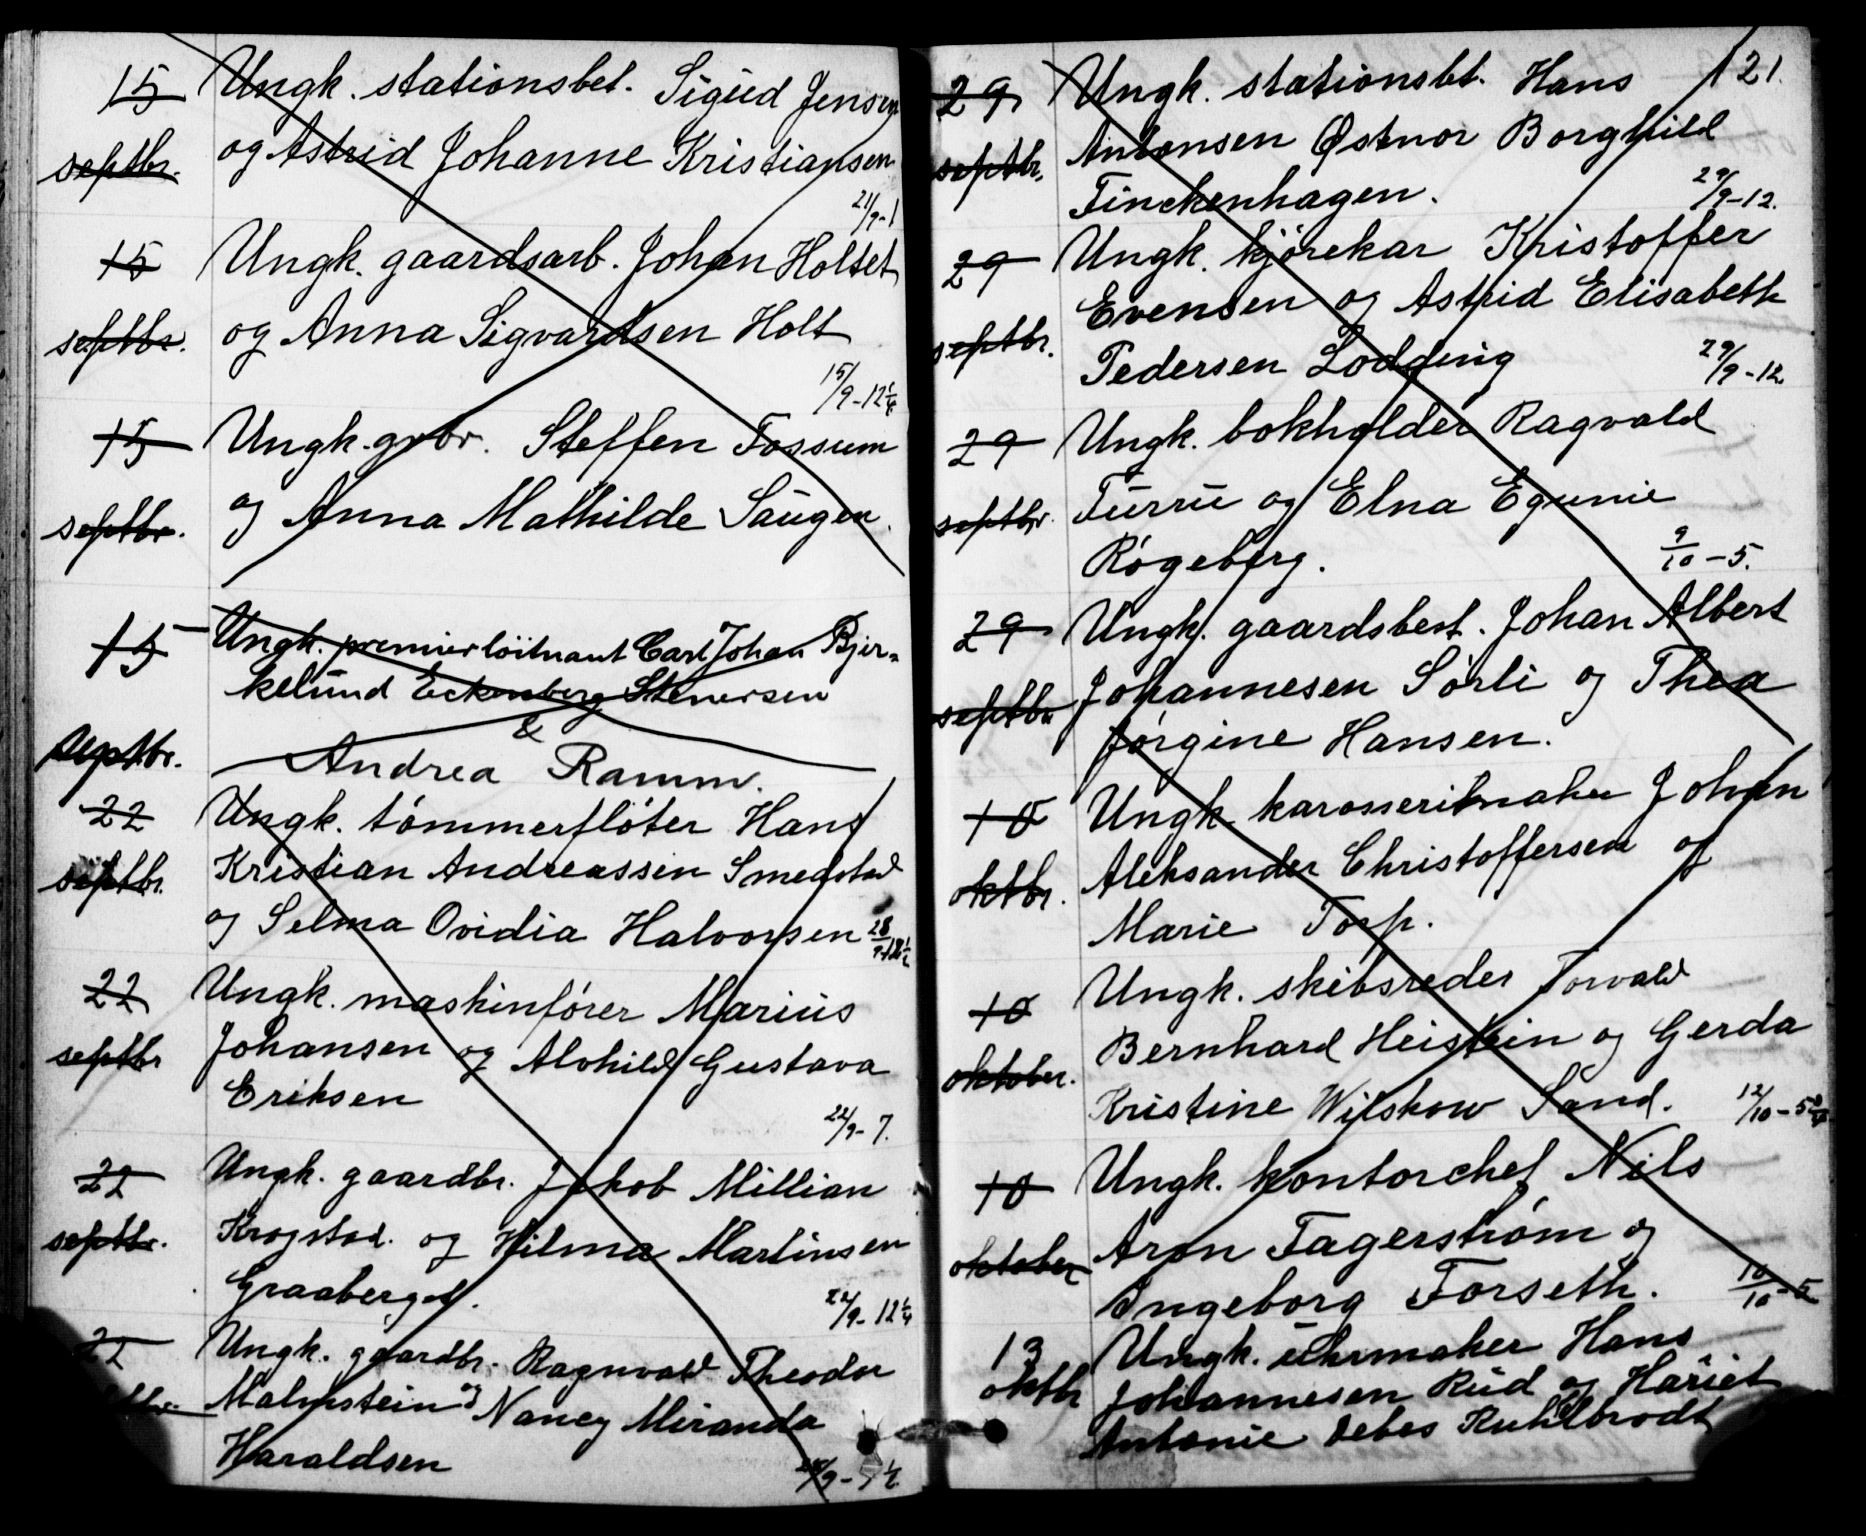 15 Ungk. stationsbet. Sigud Jensen
septbr. og Astrid Johanne Kristiansen
21/9-1
15 Ungk. gaardsarb. Johan Holtet
septbr. og Anna Sigvardsen Holt
15/9-12 1/4
15 Ungk. grbr. Steffen Fossum
septbr. og Anna Mathilde Saugen.
15 Ungk. premierlöitnant Carl Johan Bjer-
kelund Eckenberg Stenersen
&
septbr. Andrea Ramm.
22 Ungk. tömmerflöter Hans
septbr. Kristian Andreassen Smedstad
og Selma Ovidia Halvorsen 28/9-12 1/2
22 Ungk. maskinfører Marius
septbr Johansen og Alvhild Gustava
Eriksen
22/9-7.
22 Ungk. gaardbr. Jakob Millian
septbr. Krogstad. og Hilma Martinsen
Graaberget.
22/9-12 1/4
22 Ungk. gaardbr. Ragnvald Theodor
Malmstein og Nancy Miranda
Haraldsen
121.
29 Ungk. stationsbt. Hans
septbr. Antonsen Østnor Borghild
Finckenhagen.
29/9-12.
29 Ungk. kjørekar Kristoffer
septbr. Evensen og Astrid Elisabeth
Pedersen Lodding
29/9-12
29 Ungk. bokholder Ragvald
septbr. Furru og Elna Egunie
Røgeberg.
9/10-5.
29 Ungk. gaardsbest. Johan Albert
septbr Johannesen Sörli og Thea
Jørgine Hansen.
10 Ungk. karosserimaker Johan
oktbr. Aleksander Christoffersen og
Marie Torp.
10 Ungk. skibsreder Torvald
oktober. Bernhard Heistein og Gerda
Kristine Wilskow Sand.
12/10-5 3/4
10 Ungk. kontorchef Nils
oktober Aron Fagerstrøm og
Ingeborg Forseth.
10/10-5
13 Ungk. uhrmaker Hans
oktbr Johannesen Rud og Hariet
Antonie Debes Kuhlbrodt